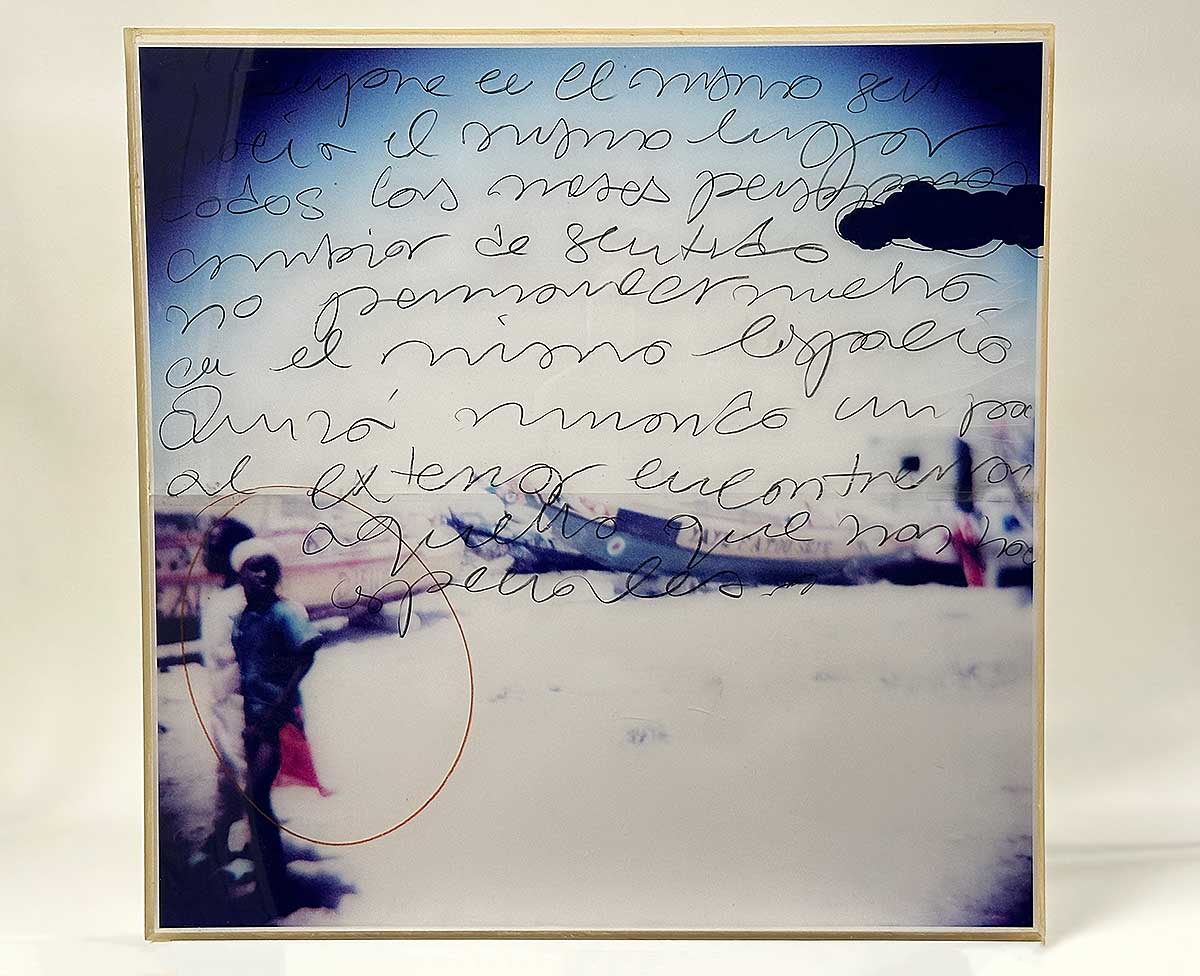 en el mismo
hacia el mismo lugar
todos los meses
cambiar de sentido
no permanecer mucho
en el mismo espacio
Quizá rumando un pa
al exterior encontremos
aquello que nos hac
especiales